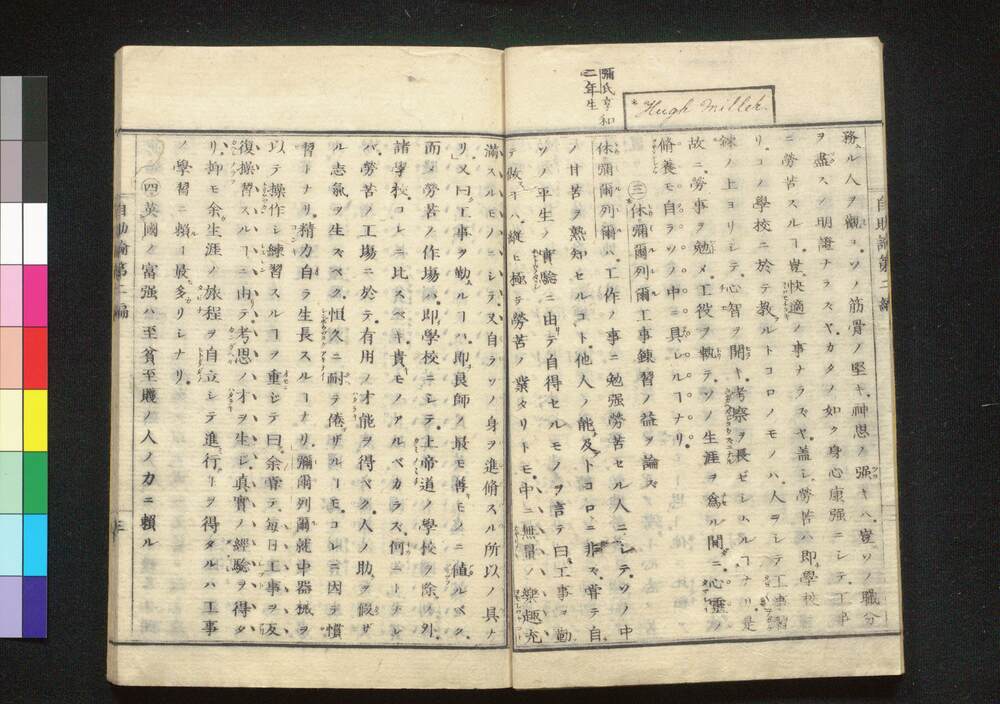 彌氏享和
二年生
*Hugh Miller.
務ル人ヲ觀ヨ.ソノ筋骨ノ堅キ.神思ノ强キハ.豈ソノ職分
ヲ盡スノ明證ナラズヤ.カクノ如ク身心康强ニシテ.工事
ニ勞苦スルヿ.豈快適ノ事ナラズヤ.蓋シ勞苦ハ即學校
リ.コノ學校ニ於テ教ルトコロノモノハ.人ヲシテ工事習
錬ノ上ヨリシテ.心智ヲ開キ考察ヲ長ゼシムルヿナリ.是
故ニ.勞事ヲ勉メ工役ヲ執テ.ソノ生涯ヲ爲ル間ニ.心靈ノ
脩養モ自ラソノ中ニ具レルヿナリ。
(三)休彌爾列爾工事錬習ノ益ヲ論ズ
休彌爾列爾ハ.工作ノ事ニ勉强勞苦セル人ニシテ.ソノ中
ノ甘苦ヲ熟知セルコト.他人ノ能及ブトコロニ非ズ.嘗テ自
ソノ平生ノ實驗ニ由テ自得セルモノヲ言テ曰.工事ヲ勤
テ做ヿハ.縱ヒ極テ勞苦ノ業タリトモ.中ニ無量ノ樂趣充
滿スルモノニシテ.又自ラソノ身ヲ進脩スル所以ノ具ナ
リ.又曰工事ヲ勤ルヿハ.即良師ノ最モ善キモノニ値ルベク.
而メ勞苦ノ作場ハ.即學校ニシテ.上帝道ノ學校ノ除クノ外.
諸學校.コレニ比スベキ貴キモノアルベカラズ.何ニトナレ
バ.勞苦ノ工場ニ於テ.有用ノ才能ヲ得ベク.人ノ助ヲ假ザ
ル志氣ヲ生ズベク.恒久ニ耐テ倦ザルヿモ.コレニ因テ慣
習トナリ.精力自ラ生長スルヿナリ.彌爾列爾就中器械ヲ
以テ操作シ練習スルヿヲ重ジテ曰.余嘗テ.每日工事ヲ反
復操習スルヿニ由テ.考思ノ才ヲ生ジ.眞實ノ經驗ヲ得タ
リ.抑モ余生涯ノ旅程ヲ自立シテ進行ヿヲ得タルハ.工事
ノ學習ニ賴ルヿ最多カリシナリ.
(四)英國ノ富强ハ至貧至賤ノ人ノ力ニ賴ル
自助論第二編